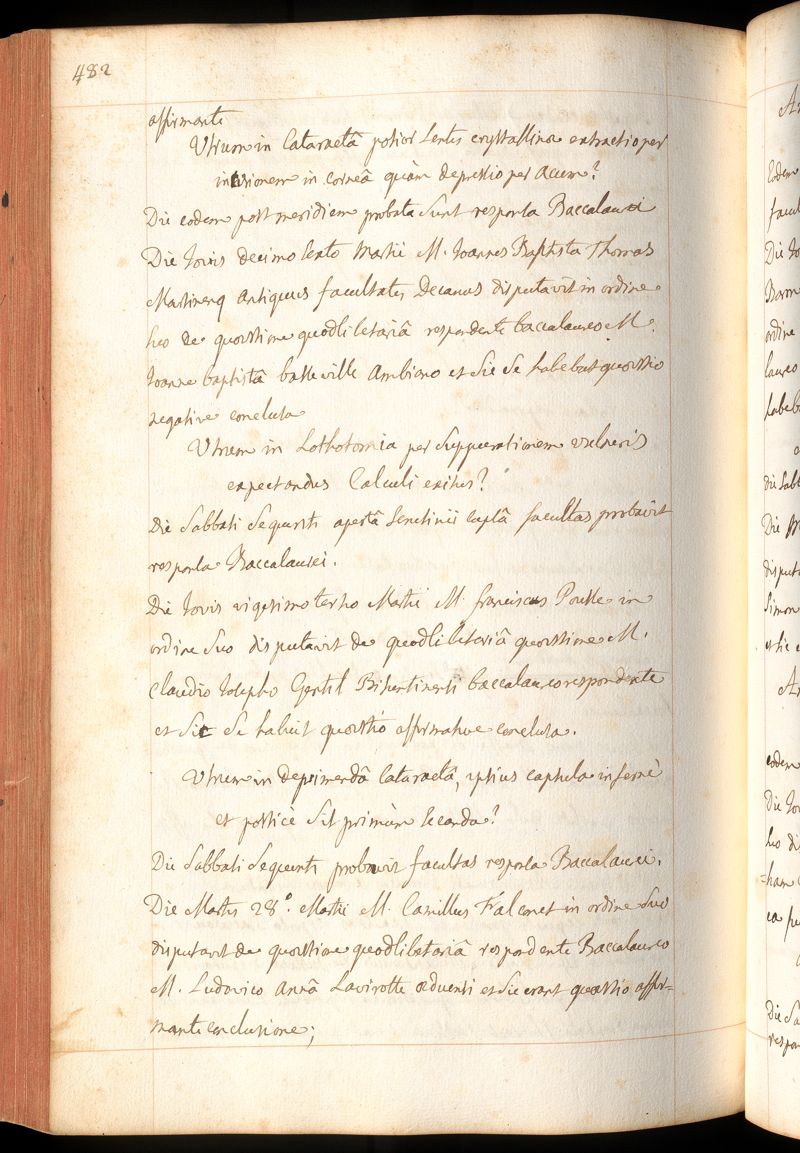 482
affirmante
Utrum in Cataractâ potior lentis crystallinæ extractio per
incisionem in corneâ quàm depressio per acum?
Die eodem post meridiem probata sunt responsa Baccalaurei
Die Jovis decimo sexto Martii M. Joannes Baptista Thomas
Martinenq Antiquus facultatis Decanus disputavit in ordine
suo de quæstione quodlibetariâ respondente baccalaureo M.
Joanne baptistâ basseville Ambiano et sic se habebat quæstio
negative conclusa
Utrum in Lothotomia per suppurationem vulneris
expectandus Calculi exitus?
Die Sabbati Sequenti apertâ Senctinii captâ facultas probavit
responsa Baccalaurei.
Die Jovis vigesimo tertio Martii M. franciscus Pousse in
ordine suo disputavit de quodlibetariâ quæstione M.
Claudio Josepho Gentil Bisuntinensi baccalaureo respondente
et sic se habuit quæstio affirmative conclusa.
Utrum in deprimendâ Cataractâ, ipsius capsula infernè
et posticè sit primùm secanda?
Die Sabbati Sequenti probavit facultas responsa Baccalaurei.
Die Martis 28°. Martii M. Camillus Falconet in ordine suo
disputavit de quæstione quodlibetariâ respondente Baccalaureo
M. Ludovico Annâ Lavirotte æduensi et sic erat quæstio affir=
mante conclusione;